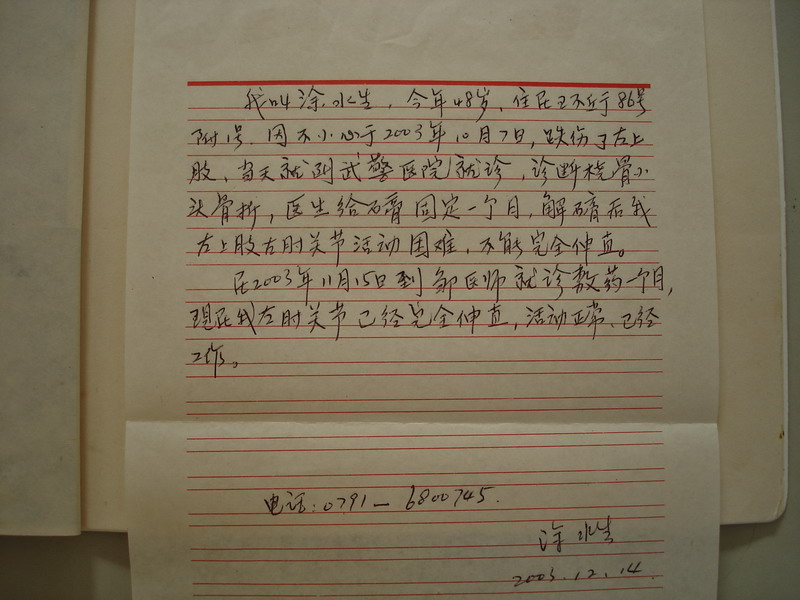 我叫涂水生，今年48岁，住在丑不丘于86号
附1号，因不小心于2003年10月7日，跌伤了左上
肢，当天就到武警医院就诊，诊断桡骨小
头骨折，医生给石膏固定一个月，解石膏后我
左上肢左肘关节活动困难，不能完全伸直。
在2003年11月15日到邹医师就诊敷药一个月，
现在我左肘关节已经完全伸直，活动正常、已经
工作。
电话：0791—6800745.
涂水生
2003.12.14